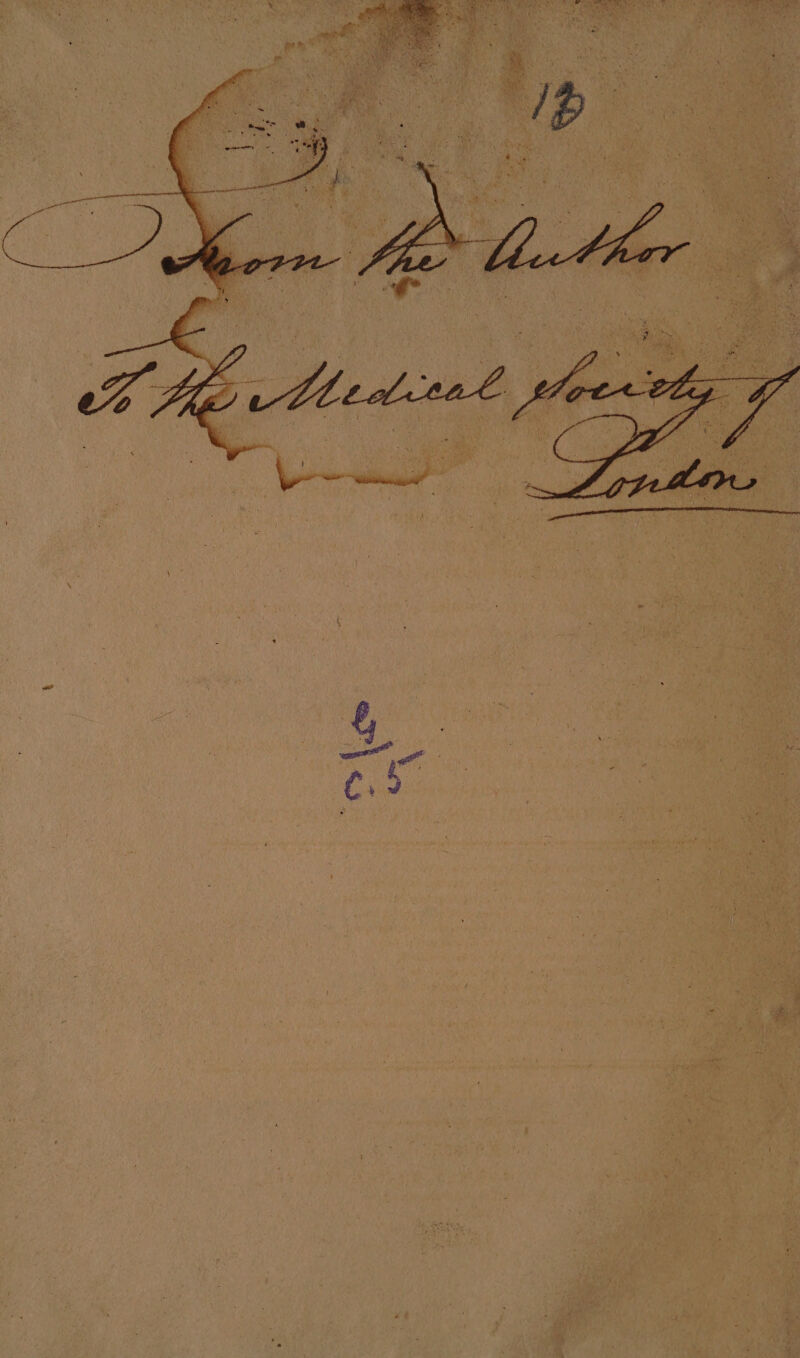 From the Author
To the Medical Society of
London
G
C.5